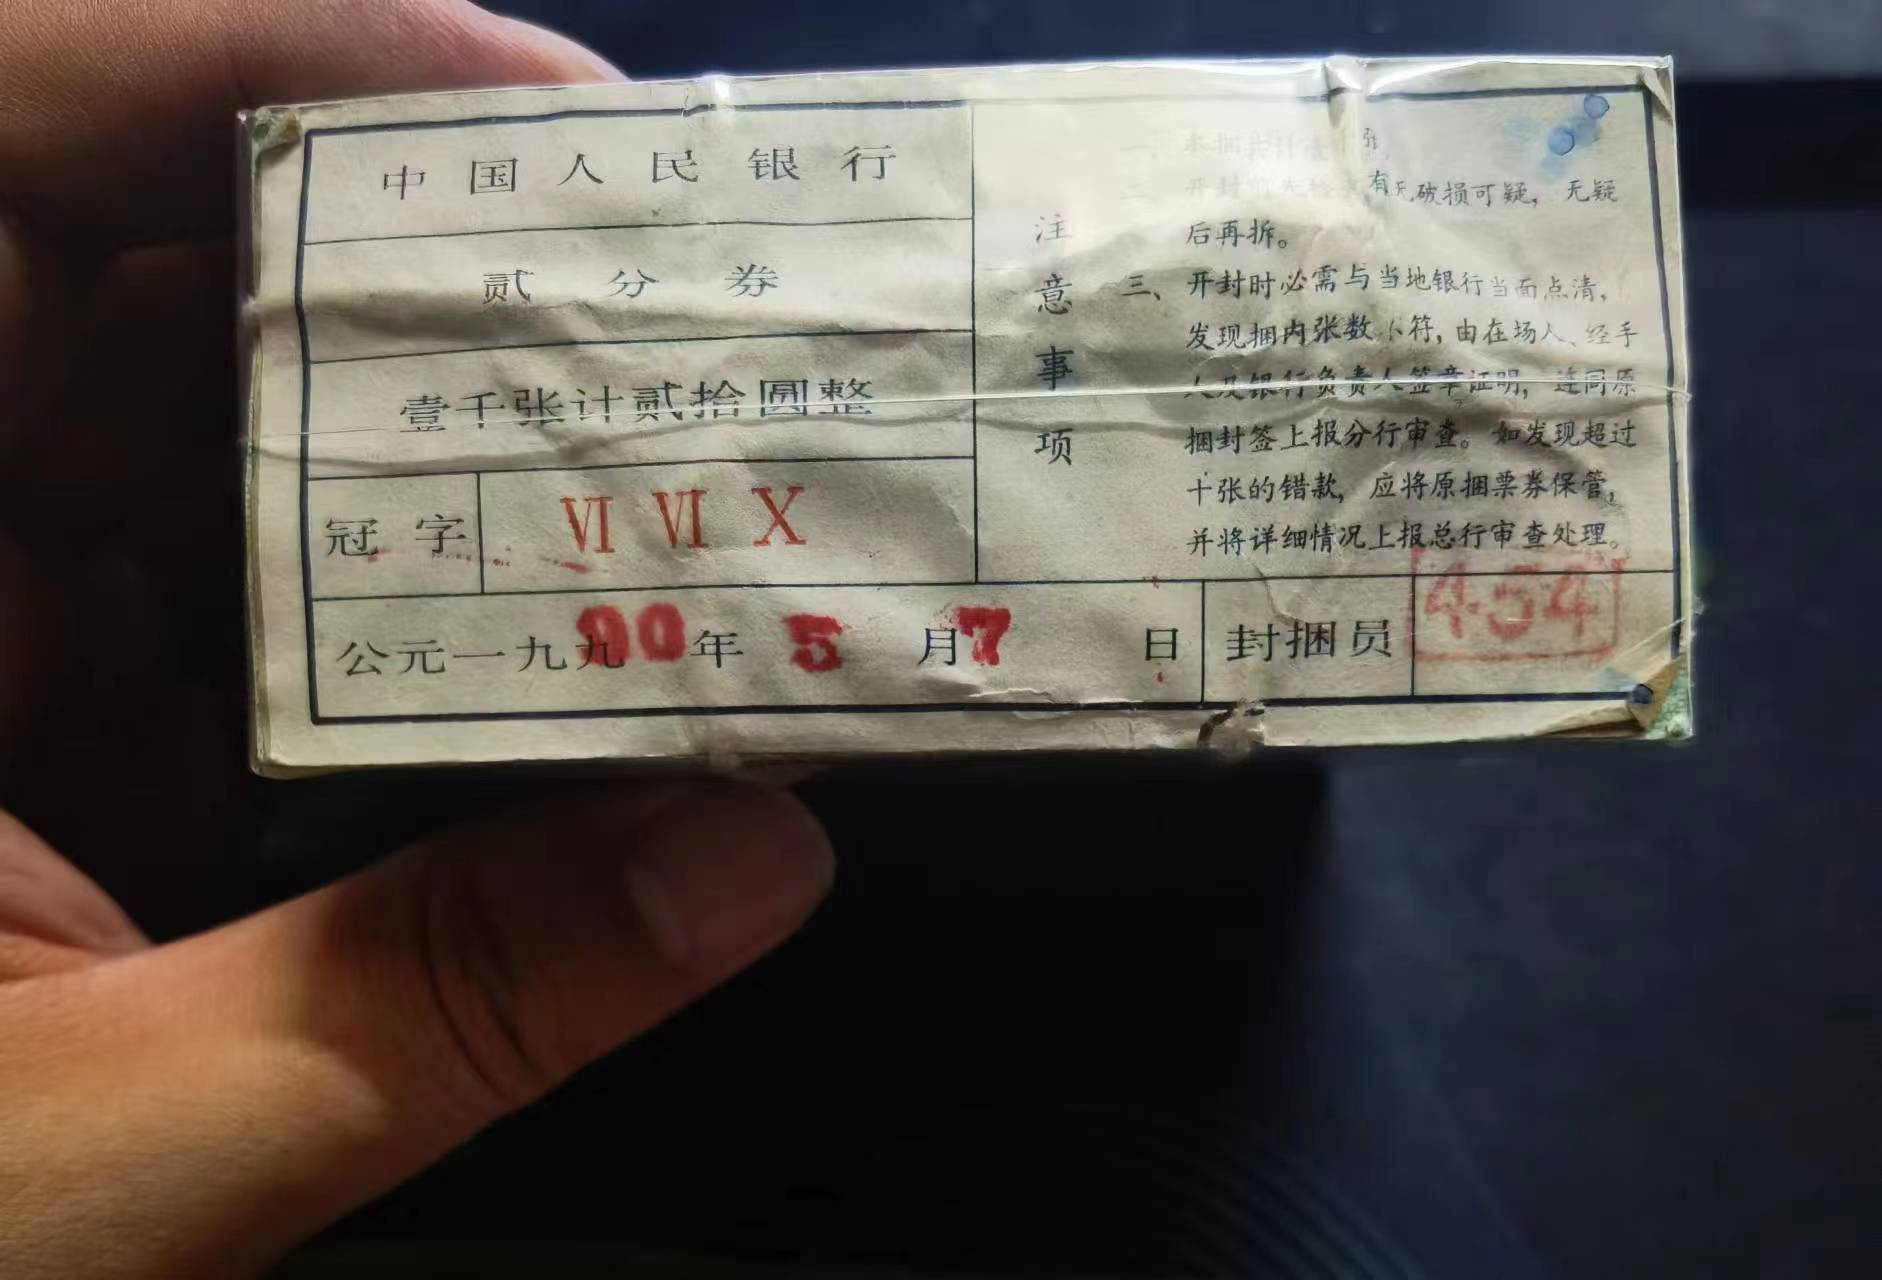 中国人民银行
贰分券
壹千张计贰拾圆整
冠字 VI VI X
公元一九九90年5月7日
封捆员 454
注意事项
一、本捆共计壹千张。
二、开封前先检查有无破损可疑，无疑
后再拆。
三、开封时必需与当地银行当面点清，
发现捆内张数不符，由在场人、经手
人及银行负责人签章证明，连同原
捆封签上报分行审查。如发现超过
十张的错款，应将原捆票券保管，
并将详细情况上报总行审查处理。